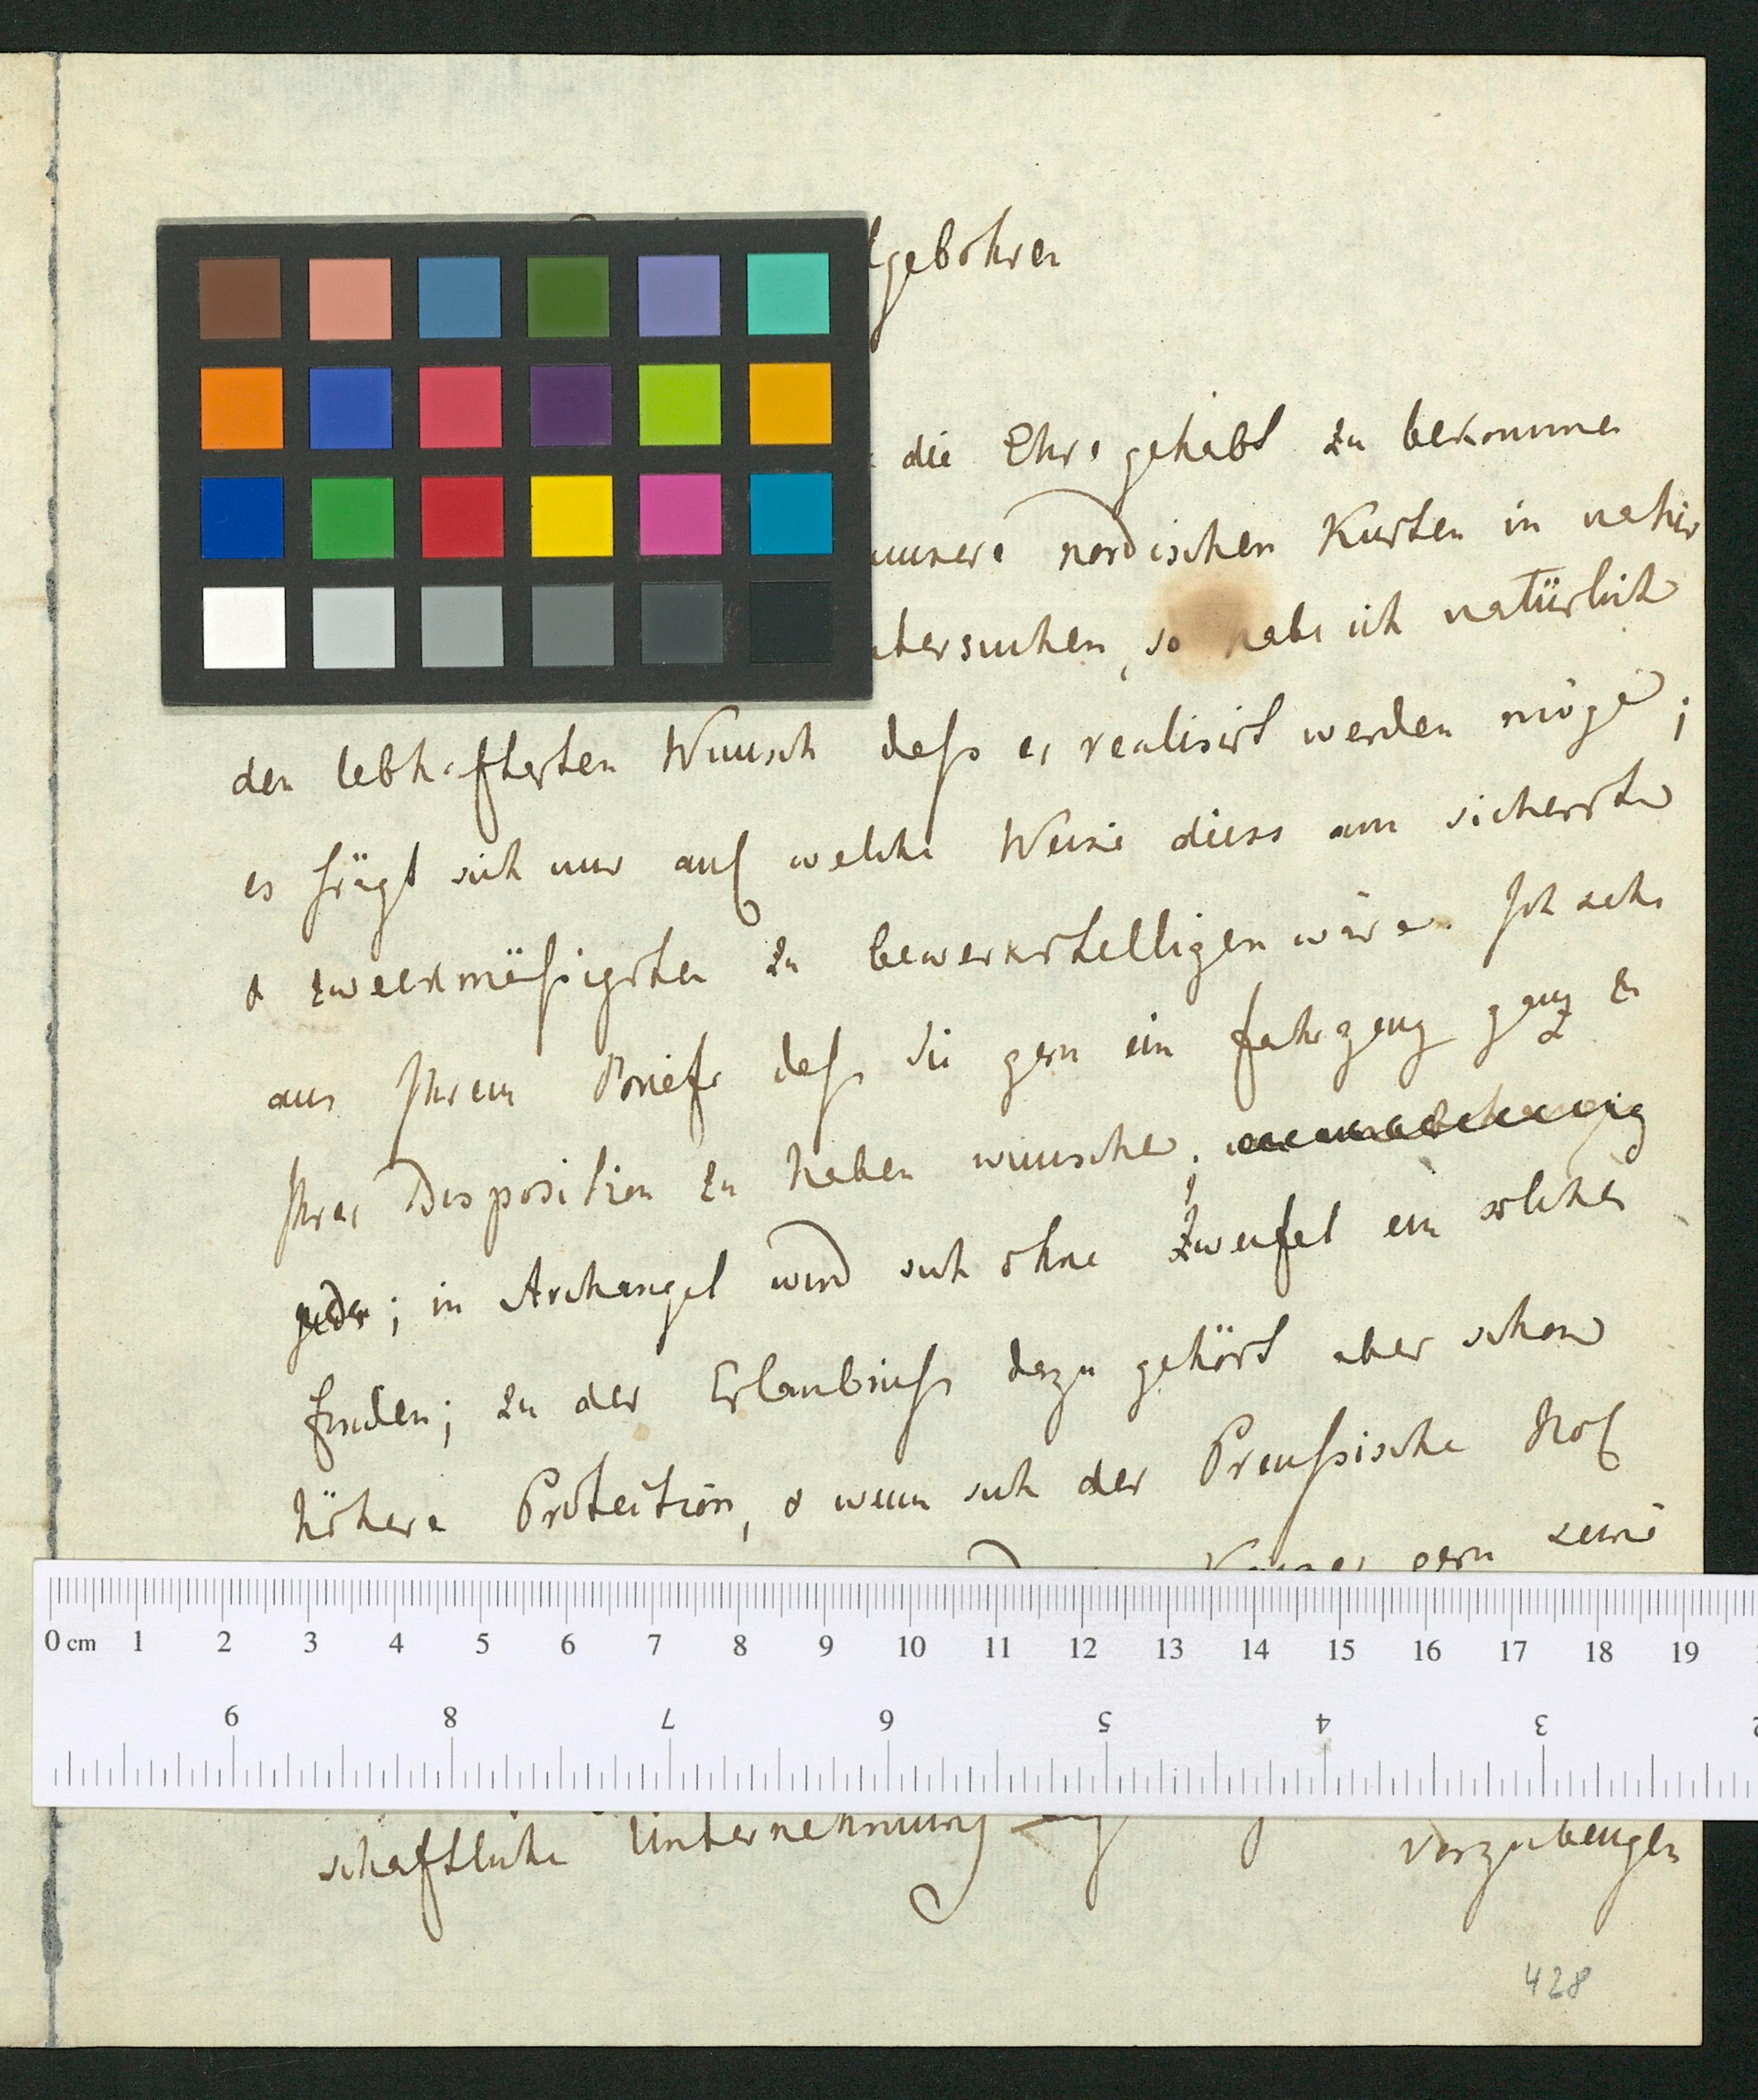 lgebohren
die Ehre gehabt zu bekommen
unsere nordischen Küsten in naher
untersuchen, so habe ich natürlich
den lebhaftesten Wunsch dass es realisirt werden möge;
es frägt sich nur auf welche Weise diess am sichersten
& zweckmässigsten zu bewerkstelligen wäre. Ich sehe
aus Ihrem Briefe dass Sie gern ein Fahrzeug ganz zu
Ihrer Disposition zu haben wünschen;
; in Archangel wird sich ohne Zweifel ein solches
finden; zu der Erlaubniss dazu gehört aber schon
höhere Protection, & wenn sich der Preussische Hof
gern seine
schaftliche Unternehmung vorzubeugen
428
0 cm 1 2 3 4 5 6 7 8 9 10 11 12 13 14 15 16 17 18 19
9 8 7 6 5 4 3 2